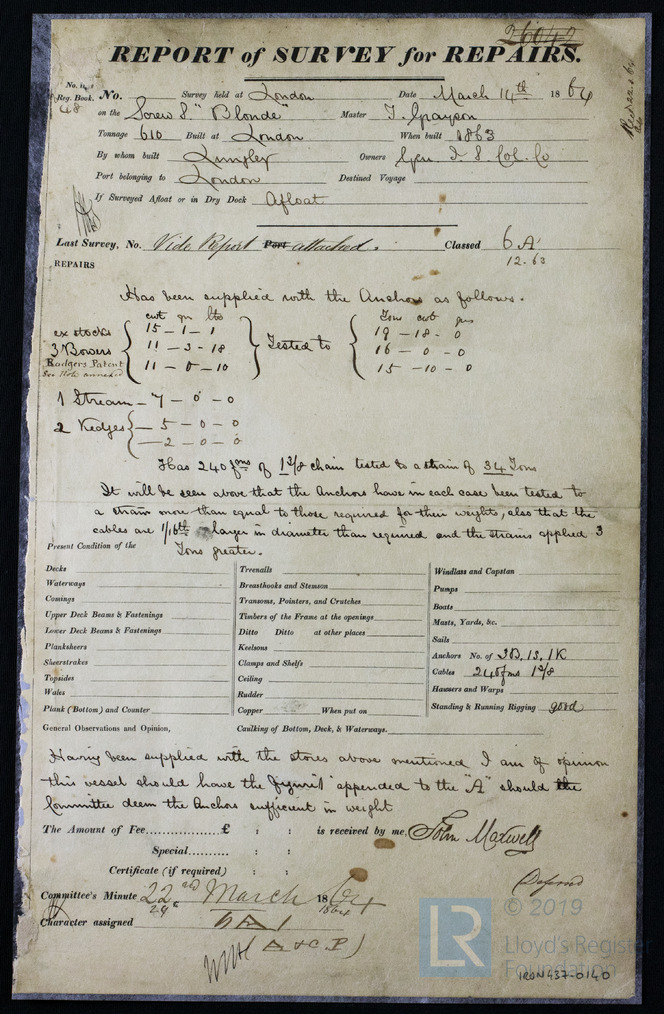 26042
REPORT of SURVEY for REPAIRS.
No. in Reg. Book. 48 No. Survey held at London Date March 14th 1864
on the Screw S. "Blonde" Master T. Grayson
Tonnage 610 Built at London When built 1863
By whom built Langley Owners Gen. I. S. Col. Co
Port belonging to London Destined Voyage
If Surveyed Afloat or in Dry Dock Afloat
Last Survey, No. Vide Report Port attached. Classed 6 A
12.63
REPAIRS
Has been supplied with the Anchors as follows.
cwt qrs lbs Tons cwt qrs
ex stocks 15 - 1 - 1 19 - 18 - 0
3 Bowers 11 - 3 - 18 Tested to 16 - 0 - 0
Rodgers Patent 11 - 0 - 10 15 - 10 - 0
See Note annexed
1 Stream - 7 - 0 - 0
2 Kedges - 5 - 0 - 0
- 2 - 0 - 0
Has 240 fms of 1 3/8 chain tested to a strain of 34 Tons
It will be seen above that the Anchors have in each case been tested to
a strain more than equal to those required for their weights, also that the
cables are 1/16th larger in diameter than required and the strains applied 3
Tons greater.
Present Condition of the
Decks
Waterways
Comings
Upper Deck Beams & Fastenings
Lower Deck Beams & Fastenings
Planksheers
Sheerstrakes
Topsides
Wales
Plank (Bottom) and Counter
Treenails
Breasthooks and Stemson
Transoms, Pointers, and Crutches
Timbers of the Frame at the openings
Ditto Ditto at other places
Keelsons
Clamps and Shelfs
Ceiling
Rudder
Copper When put on
Windlass and Capstan
Pumps
Boats
Masts, Yards, &c.
Sails
Anchors No. of 3B, 1S, 1K
Cables 240 fms 1 3/8
Hawsers and Warps
Standing & Running Rigging good
General Observations and Opinion, Caulking of Bottom, Deck, & Waterways.
Having been supplied with the stores above mentioned I am of opinion
this vessel should have the figure 1 appended to the "A" should the
Committee deem the Anchors sufficient in weight
The Amount of Fee............... £ : : is received by me, John Maxwell
Special............ : :
Certificate (if required) : :
Deferred
Committee's Minute 22nd March 1864
29 1864
Character assigned 6 A 1
(A & C. P.)
© 2019
LR Lloyd's Register
Foundation
IRON437-0140